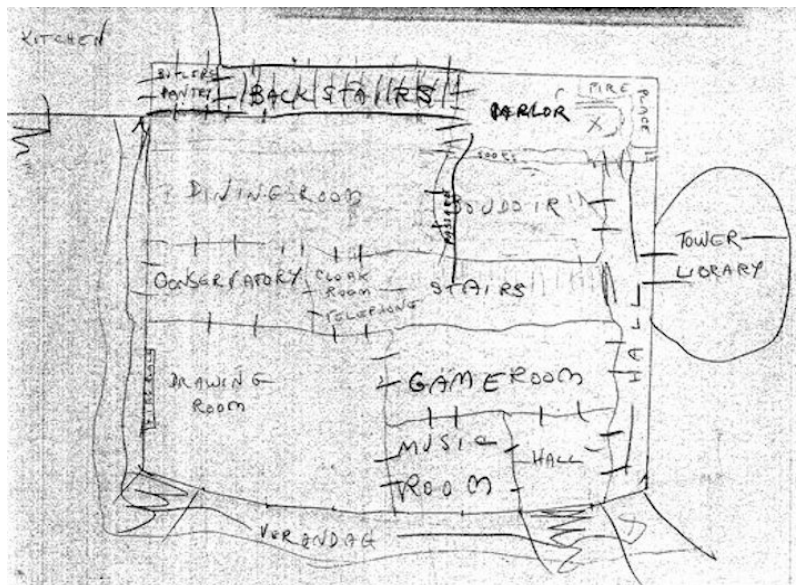 KITCHEN
BUTLERS
PANTRY
BACK STAIRS
PARLOR
FIRE
PLACE
X
DOORS
DINING ROOM
PASSAGE
BOUDOIR
TOWER
LIBRARY
CONSERVATORY
CLOAK
ROOM
TELEPHONE
STAIRS
HALL
FIRE PLACE
DRAWING
ROOM
GAME ROOM
MUSIC
ROOM
HALL
VERANDAG